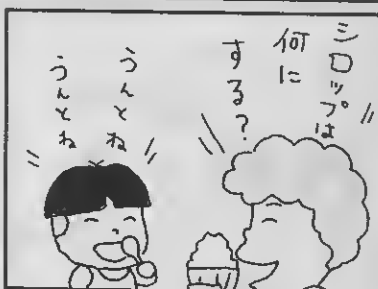 シロップは
何に
する？
うんとね
うんとね